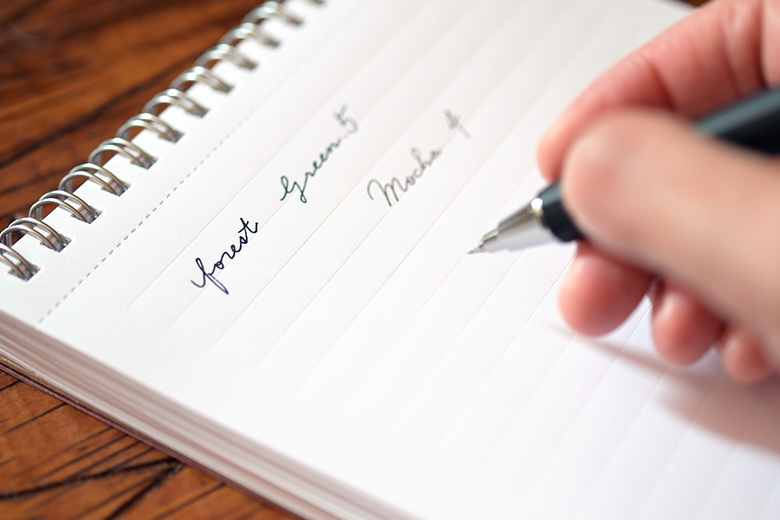 forest Green 5
Mocha 4